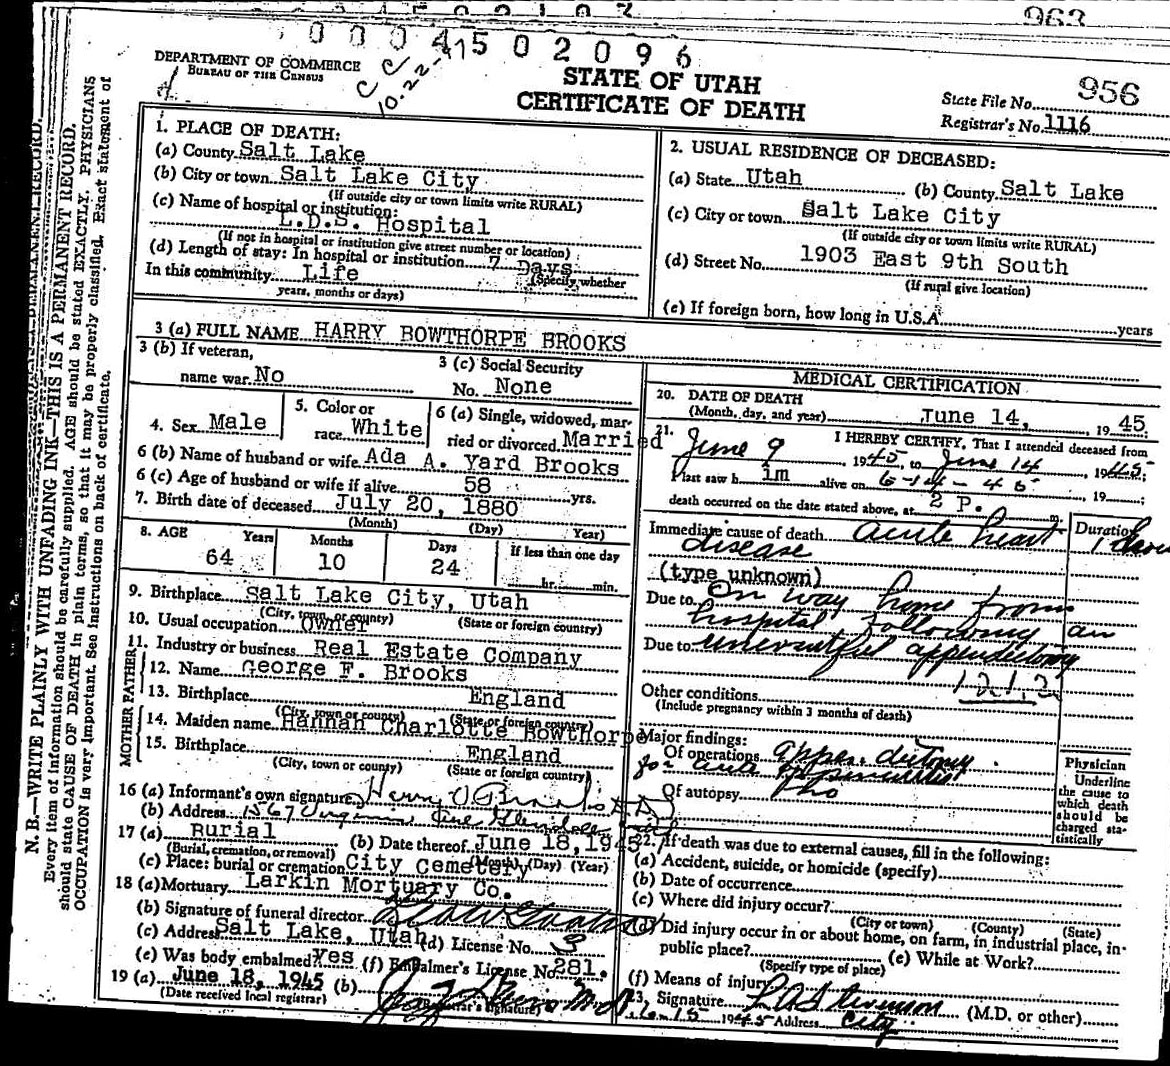 963
00045 02096
C C
10-22-71
DEPARTMENT OF COMMERCE
BUREAU OF THE CENSUS
STATE OF UTAH
CERTIFICATE OF DEATH
State File No. 956
Registrar's No. 1116
N. B.—WRITE PLAINLY WITH UNFADING INK—THIS IS A PERMANENT RECORD.
Every item of information should be carefully supplied. AGE should be stated EXACTLY. PHYSICIANS
should state CAUSE OF DEATH in plain terms, so that it may be properly classified. Exact statement of
OCCUPATION is very important. See instructions on back of certificate.
1. PLACE OF DEATH:
(a) County Salt Lake
(b) City or town Salt Lake City
(If outside city or town limits write RURAL)
(c) Name of hospital or institution:
L.D.S. Hospital
(If not in hospital or institution give street number or location)
(d) Length of stay: In hospital or institution 7 Days
(Specify whether
In this community Life
years, months or days)
2. USUAL RESIDENCE OF DECEASED:
(a) State Utah (b) County Salt Lake
(c) City or town Salt Lake City
(If outside city or town limits write RURAL)
(d) Street No. 1903 East 9th South
(If rural give location)
(e) If foreign born, how long in U.S.A. years
3 (a) FULL NAME HARRY BOWTHORPE BROOKS
3 (b) If veteran,
name war No
3 (c) Social Security
No. None
4. Sex Male
5. Color or
race White
6 (a) Single, widowed, mar-
ried or divorced Married
6 (b) Name of husband or wife Ada A. Yard Brooks
6 (c) Age of husband or wife if alive 58 yrs.
7. Birth date of deceased July 20, 1880
(Month) (Day) Year)
8. AGE Years Months Days If less than one day
64 10 24 hr. min.
9. Birthplace Salt Lake City, Utah
(City, town, or county) (State or foreign country)
10. Usual occupation Owner
11. Industry or business Real Estate Company
FATHER
12. Name George F. Brooks
13. Birthplace England
(City, town or county) (State or foreign country)
MOTHER
14. Maiden name Hannah Charlotte Bowthorpe
15. Birthplace England
(City, town or county) (State or foreign country)
16 (a) Informant's own signature Harry Brooks
(b) Address 1567
17 (a) Burial (b) Date thereof June 18, 1945
(Burial, cremation, or removal) (Month) (Day) (Year)
(c) Place: burial or cremation City Cemetery
18 (a) Mortuary Larkin Mortuary Co.
(b) Signature of funeral director
(c) Address Salt Lake, Utah (d) License No. 3
(e) Was body embalmed? Yes (f) Embalmer's License No. 281.
19 (a) June 18, 1945 (b)
(Date received local registrar) (Registrar's signature)
MEDICAL CERTIFICATION
20. DATE OF DEATH
(Month, day, and year) June 14, 1945
21. I HEREBY CERTIFY, That I attended deceased from
June 9 1945, to June 14 1945;
I last saw h im alive on 6-14-45, 19 ;
death occurred on the date stated above, at 2 P. m.
Duration
Immediate cause of death acute heart 1
disease
(type unknown)
Due to On way home from
hospital following an
Due to uneventful appendectomy
121.2
Other conditions
(Include pregnancy within 3 months of death)
Major findings:
Of operations appendectomy
for acute appendicitis
Of autopsy no
Physician
Underline
the cause to
which death
should be
charged sta-
tistically
22. If death was due to external causes, fill in the following:
(a) Accident, suicide, or homicide (specify)
(b) Date of occurrence
(c) Where did injury occur?
(City or town) (County) (State)
(d) Did injury occur in or about home, on farm, in industrial place, in-
public place? (e) While at Work?
(Specify type of place)
(f) Means of injury
23. Signature (M.D. or other)
6-15 1945 Address City